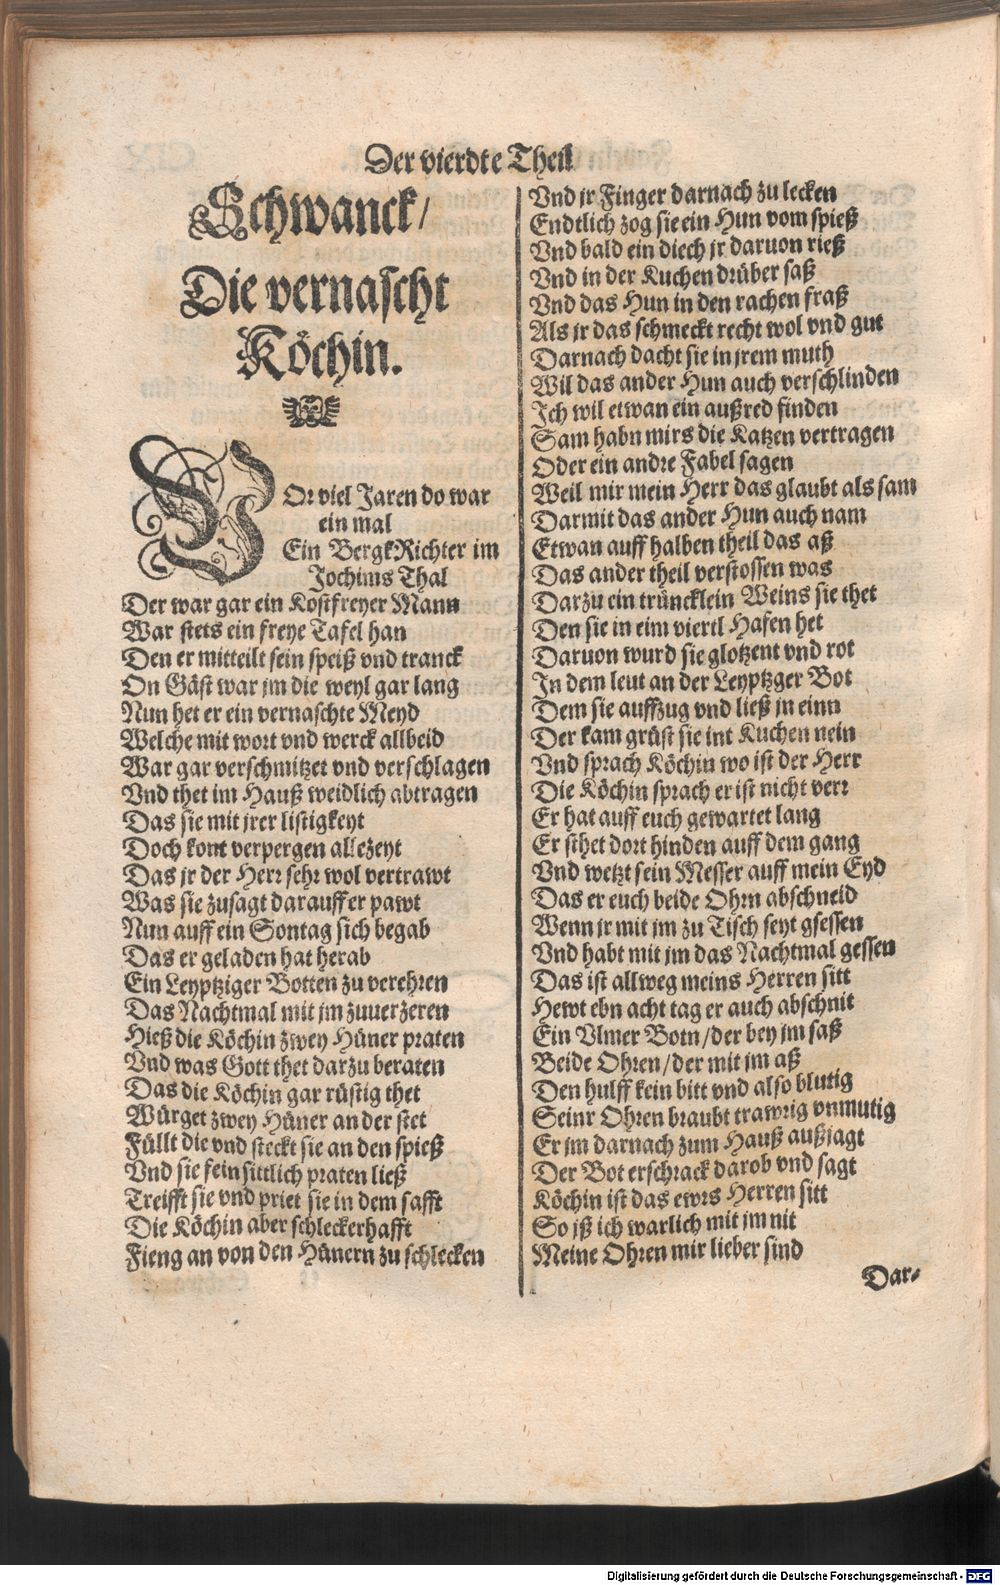 Der vierdte Theil
Schwanck/
Die vernascht
Köchin.
VOr viel Jaren do war
ein mal
Ein BergkRichter im
Jochims Thal
Der war gar ein Kostfreyer Mann
War stets ein freye Tafel han
Den er mitteilt sein speiß vnd tranck
On Gäst war jm die weyl gar lang
Nun het er ein vernaschte Meyd
Welche mit wort vnd werck allbeid
War gar verschmitzet vnd verschlagen
Vnd thet im Hauß weidlich abtragen
Das sie mit jrer listigkeyt
Doch kont verpergen allezeyt
Das jr der Herr sehr wol vertrawt
Was sie zusagt darauff er pawt
Nun auff ein Sontag sich begab
Das er geladen hat herab
Ein Leyptziger Botten zu verehren
Das Nachtmal mit jm zuuerzeren
Hieß die Köchin zwey Hüner praten
Vnd was Gott thet darzu beraten
Das die Köchin gar rüstig thet
Würget zwey Hüner an der stet
Füllt die vnd steckt sie an den spieß
Vnd sie fein sittlich praten ließ
Treifft sie vnd priet sie in dem safft
Die Köchin aber schleckerhafft
Fieng an von den Hünern zu schlecken
Vnd jr Finger darnach zu lecken
Endtlich zog sie ein Hun vom spieß
Vnd bald ein diech jr daruon rieß
Vnd in der Kuchen drüber saß
Vnd das Hun in den rachen fraß
Als jr das schmeckt recht wol vnd gut
Darnach dacht sie in jrem muth
Wil das ander Hun auch verschlinden
Jch wil etwan ein außred finden
Sam habn mirs die Katzen vertragen
Oder ein andre Fabel sagen
Weil mir mein Herr das glaubt als sam
Darmit das ander Hun auch nam
Etwan auff halben theil das aß
Das ander theil verstossen was
Darzu ein trüncklein Weins sie thet
Den sie in eim viertl Hafen het
Daruon wurd sie glotzent vnd rot
Jn dem leut an der Leyptzger Bot
Dem sie auffzug vnd ließ jn einn
Der kam grüst sie int Kuchen nein
Vnd sprach Köchin wo ist der Herr
Die Köchin sprach er ist nicht verr
Er hat auff euch gewartet lang
Er sthet dort hinden auff dem gang
Vnd wetzt sein Messer auff mein Eyd
Das er euch beide Ohrn abschneid
Wenn jr mit jm zu Tisch seyt gsessen
Vnd habt mit jm das Nachtmal gessen
Das ist allweg meins Herren sitt
Hewt ebn acht tag er auch abschnit
Ein Vlmer Botn/der bey jm saß
Beide Ohren/der mit jm aß
Den hulff kein bitt vnd also blutig
Seinr Ohren braubt trawrig vnmutig
Er jm darnach zum Hauß außjagt
Der Bot erschrack darob vnd sagt
Köchin ist das ewrs Herren sitt
So jß ich warlich mit jm nit
Meine Ohren mir lieber sind
Dar-
Digitalisierung gefördert durch die Deutsche Forschungsgemeinschaft - DFG